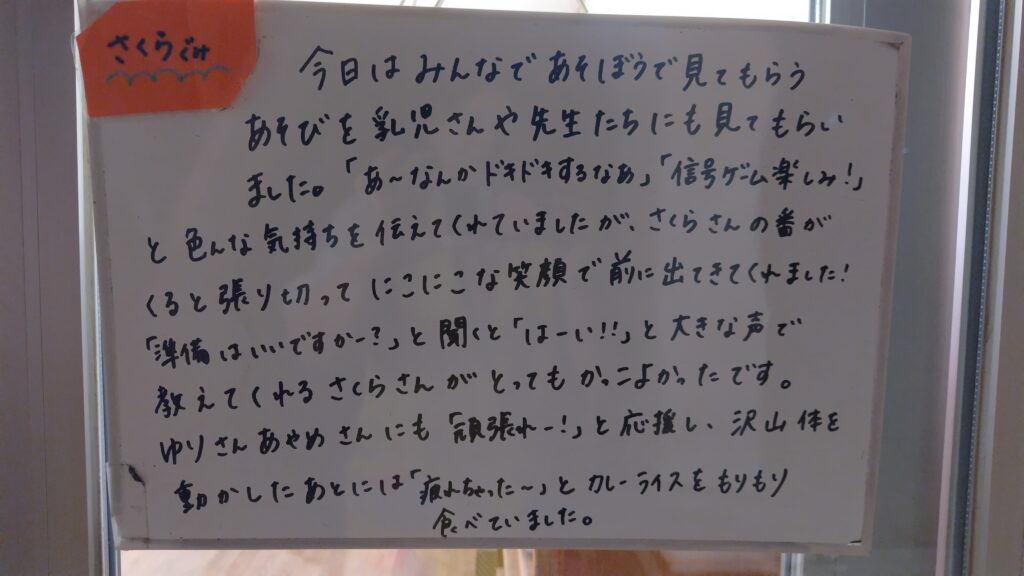 さくらぐみ
今日はみんなであそぼうで見てもらう
あそびを乳児さんや先生たちにも見てもらい
ました。「あ〜なんかドキドキするなぁ」「信号ゲーム楽しみ!」
と色んな気持ちを伝えてくれていましたが、さくらさんの番が
くると張り切ってにこにこな笑顔で前に出てきてくれました!
「準備はいいですかー?」と聞くと「はーい!!」と大きな声で
教えてくれるさくらさんがとってもかっこよかったです。
ゆりさんあやめさんにも「頑張れー!」と応援し、沢山体を
動かしたあとには「疲れちゃった〜」とカレーライスをもりもり
食べていました。